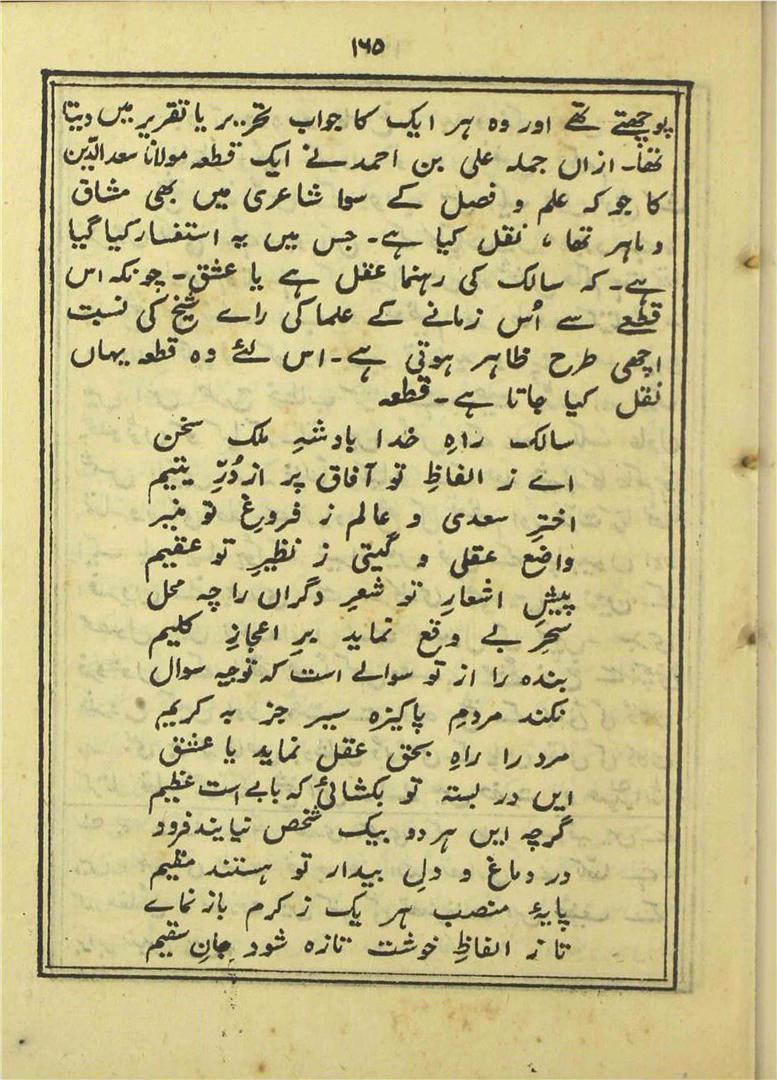 ۱۶۵
پوچھتے تھے اور وہ ہر ایک کا جواب تحریر یا تقریر میں دیتا
تھا۔ ازاں جملہ علی بن احمد نے ایک قطعہ مولانا سعد الدّین
کا جو کہ علم و فصل کے سوا شاعری میں بھی مشاق
و ماہر تھا، نقل کیا ہے۔ جس میں یہ استفسار کیا گیا
ہے۔ کہ سالک کی رہنما عقل ہے یا عشق۔ چونکہ اس
قطعے سے اُس زمانے کے علما کی راے شیخ کی نسبت
اچھی طرح ظاہر ہوتی ہے۔ اس لئے وہ قطعہ یہاں
نقل کیا جاتا ہے۔ قطعہ
سالکِ راہِ خدا بادشہِ ملک سخن
اے ز الفاظِ تو آفاق پر از دُرِّ یتیم
اخترِ سعدی و عالم ز فروغِ تو منیر
واضع عقلی و گیتی ز نظیرِ تو عقیم
پیشِ اشعارِ تو شعرِ دگراں را چہ محل
سحرِ بے وقع نماید برِ اعجازِ کلیم
بندہ را از تو سوالے است کہ توجیہ سوال
نکند مردمِ پاکیزہ سیر جز بہ کریم
مرد را راہِ بحق عقل نماید یا عشق
ایں در بستہ تو بکشائی کہ بابے است عظیم
گرچہ ایں ہر دو بیک شخص نیایند فرود
در دماغ و دلِ بیدار تو ہستند مقیم
پایۂ منصب ہر یک ز کرم باز نماے
تا ز الفاظِ خوشت تازہ شود جانِ سقیم